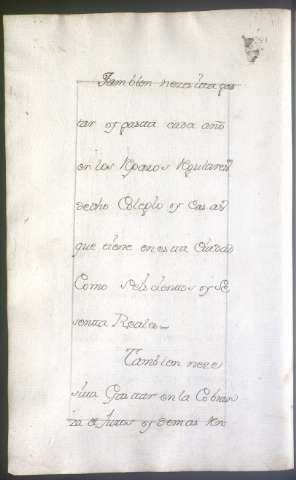 Tambien nezesita gas
tar y gasta cada año
en los Reparos Regulares
de dho Colegio y Casas
que tiene en esta Ciudad
Como Seis cientos y Se
senta Reales
Tambien neze
sita Gastar en la Cobran
za de Juros y demas Ren